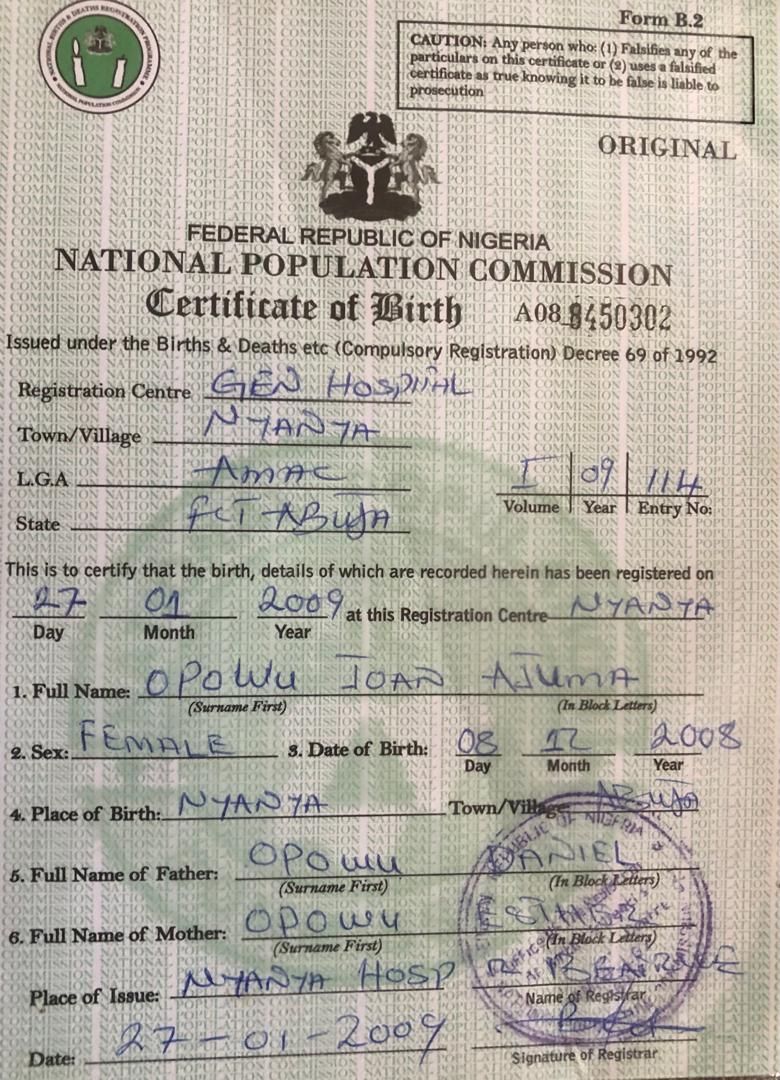 Form B.2
CAUTION: Any person who: (1) Falsifies any of the
particulars on this certificate or (2) uses a falsified
certificate as true knowing it to be false is liable to
prosecution
ORIGINAL
FEDERAL REPUBLIC OF NIGERIA
NATIONAL POPULATION COMMISSION
Certificate of Birth A08 8450302
Issued under the Births & Deaths etc (Compulsory Registration) Decree 69 of 1992
Registration Centre GEN HOSPITAL
Town/Village NYANYA
L.G.A AMAC
I 09 114
Volume Year Entry No:
State FCT ABUJA
This is to certify that the birth, details of which are recorded herein has been registered on
27 01 2009 at this Registration Centre NYANYA
Day Month Year
1. Full Name: OPOWU JOAN AJUMA
(Surname First) (In Block Letters)
2. Sex: FEMALE 3. Date of Birth: 08 12 2008
Day Month Year
4. Place of Birth: NYANYA Town/Village ABUJA
5. Full Name of Father: OPOWU DANIEL
(Surname First) (In Block Letters)
6. Full Name of Mother: OPOWU
(Surname First) (In Block Letters)
Place of Issue: NYANYA HOSP BEATRICE
Name of Registrar
Date: 27-01-2009
Signature of Registrar